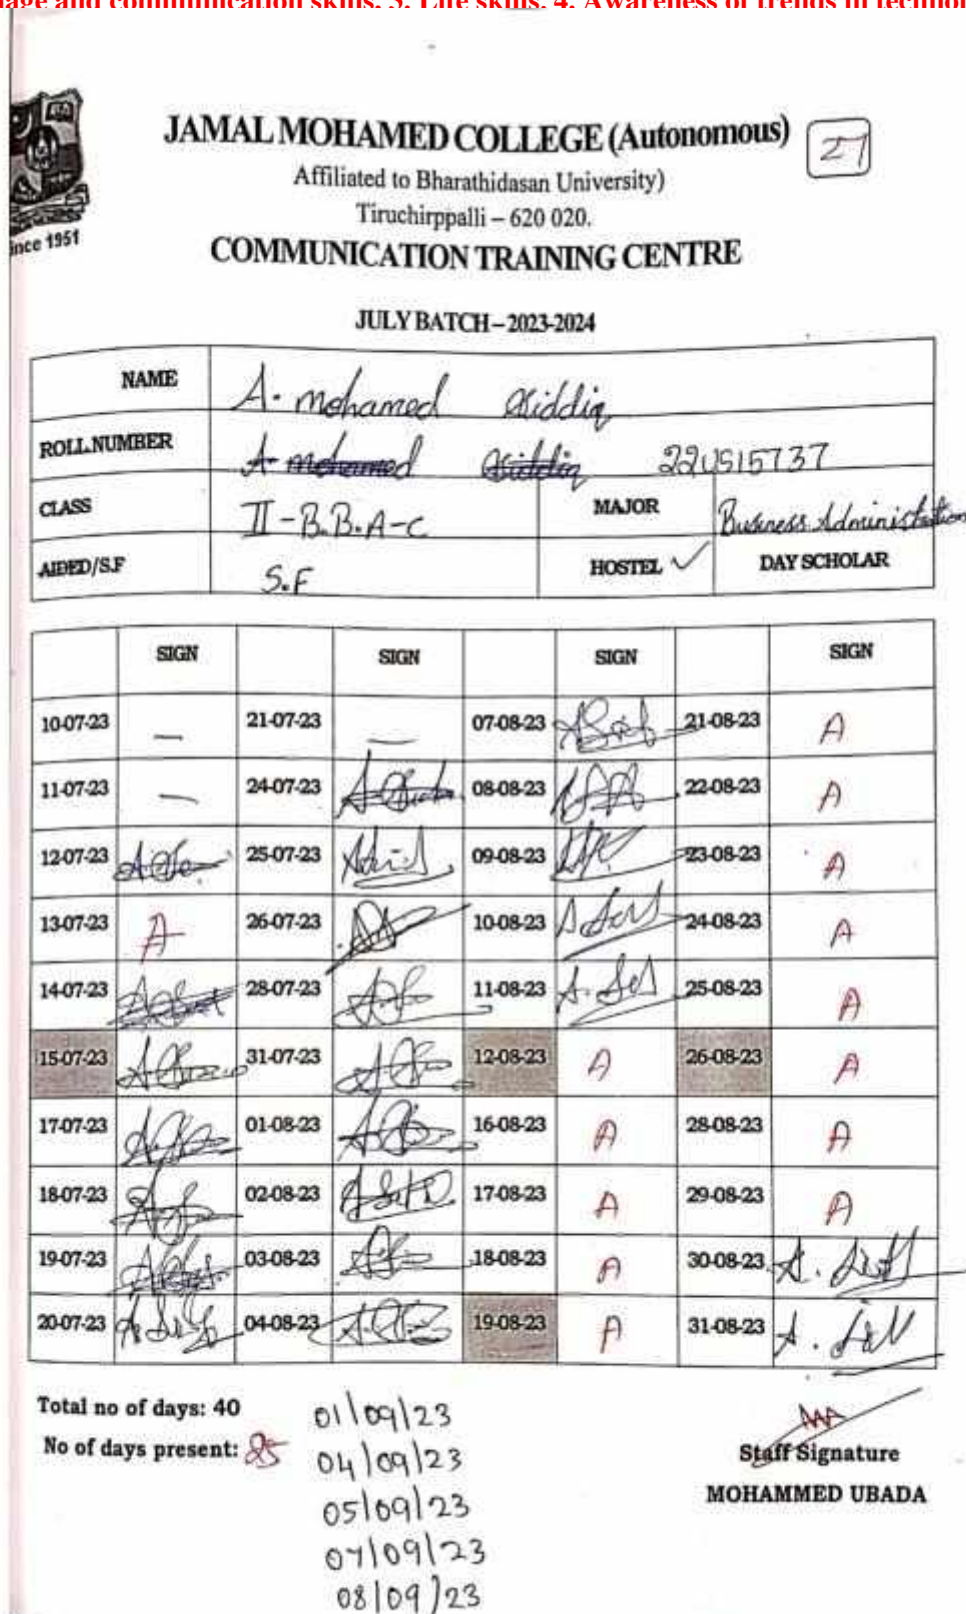 age and communication skills, 3. Life skills, 4. Awareness of trends in techno
JAMAL MOHAMED COLLEGE (Autonomous) 27
Affiliated to Bharathidasan University)
Tiruchirppalli – 620 020.
COMMUNICATION TRAINING CENTRE
ince 1951
JULY BATCH – 2023-2024
NAME A. mohamed Siddiq
ROLL NUMBER A mohamed Siddiq 22US15737
CLASS II - B.B.A - C MAJOR Business Administration
AIDED/S.F S.F HOSTEL ✓ DAY SCHOLAR
SIGN SIGN SIGN SIGN
10-07-23 — 21-07-23 — 07-08-23 21-08-23 A
11-07-23 — 24-07-23 08-08-23 22-08-23 A
12-07-23 25-07-23 09-08-23 23-08-23 A
13-07-23 A 26-07-23 10-08-23 24-08-23 A
14-07-23 28-07-23 11-08-23 25-08-23 A
15-07-23 31-07-23 12-08-23 A 26-08-23 A
17-07-23 01-08-23 16-08-23 A 28-08-23 A
18-07-23 02-08-23 17-08-23 A 29-08-23 A
19-07-23 03-08-23 18-08-23 A 30-08-23
20-07-23 04-08-23 19-08-23 A 31-08-23
Total no of days: 40
No of days present: 25
01/09/23
04/09/23
05/09/23
07/09/23
08/09/23
Staff Signature
MOHAMMED UBADA